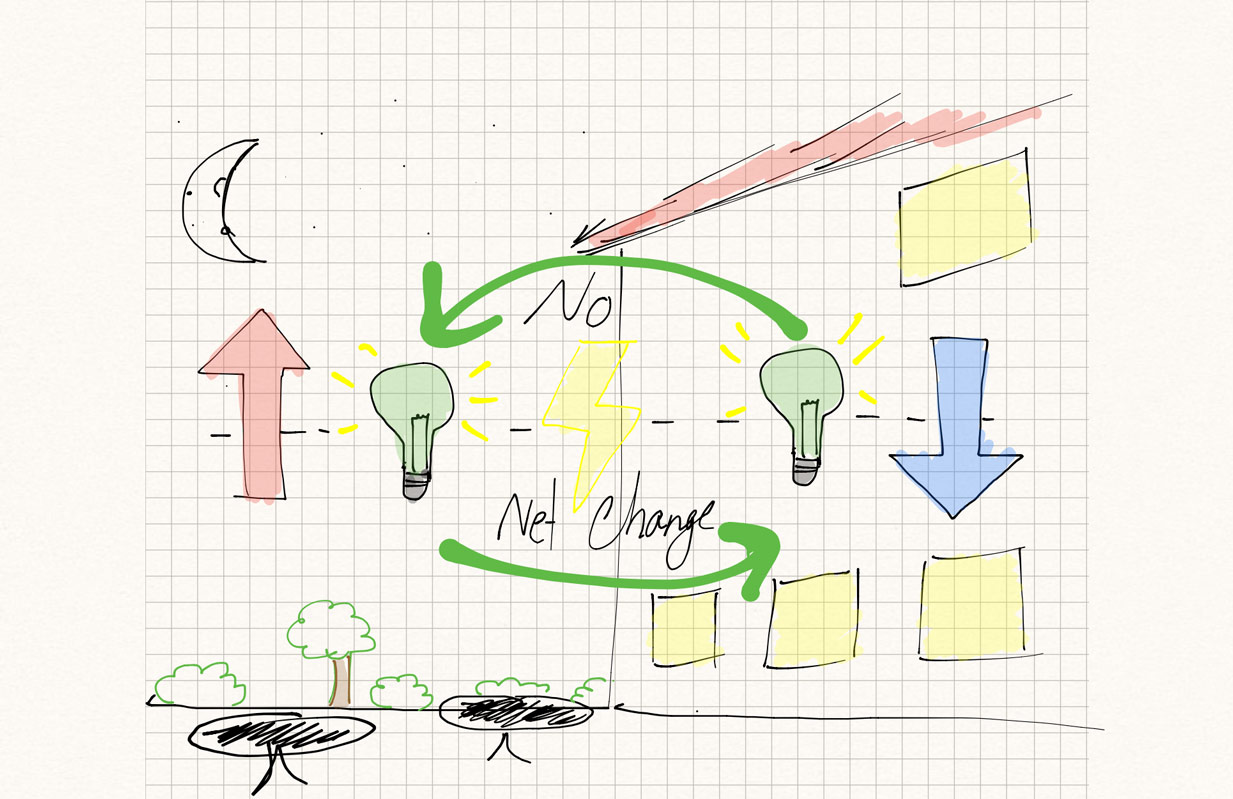 No
Net Change